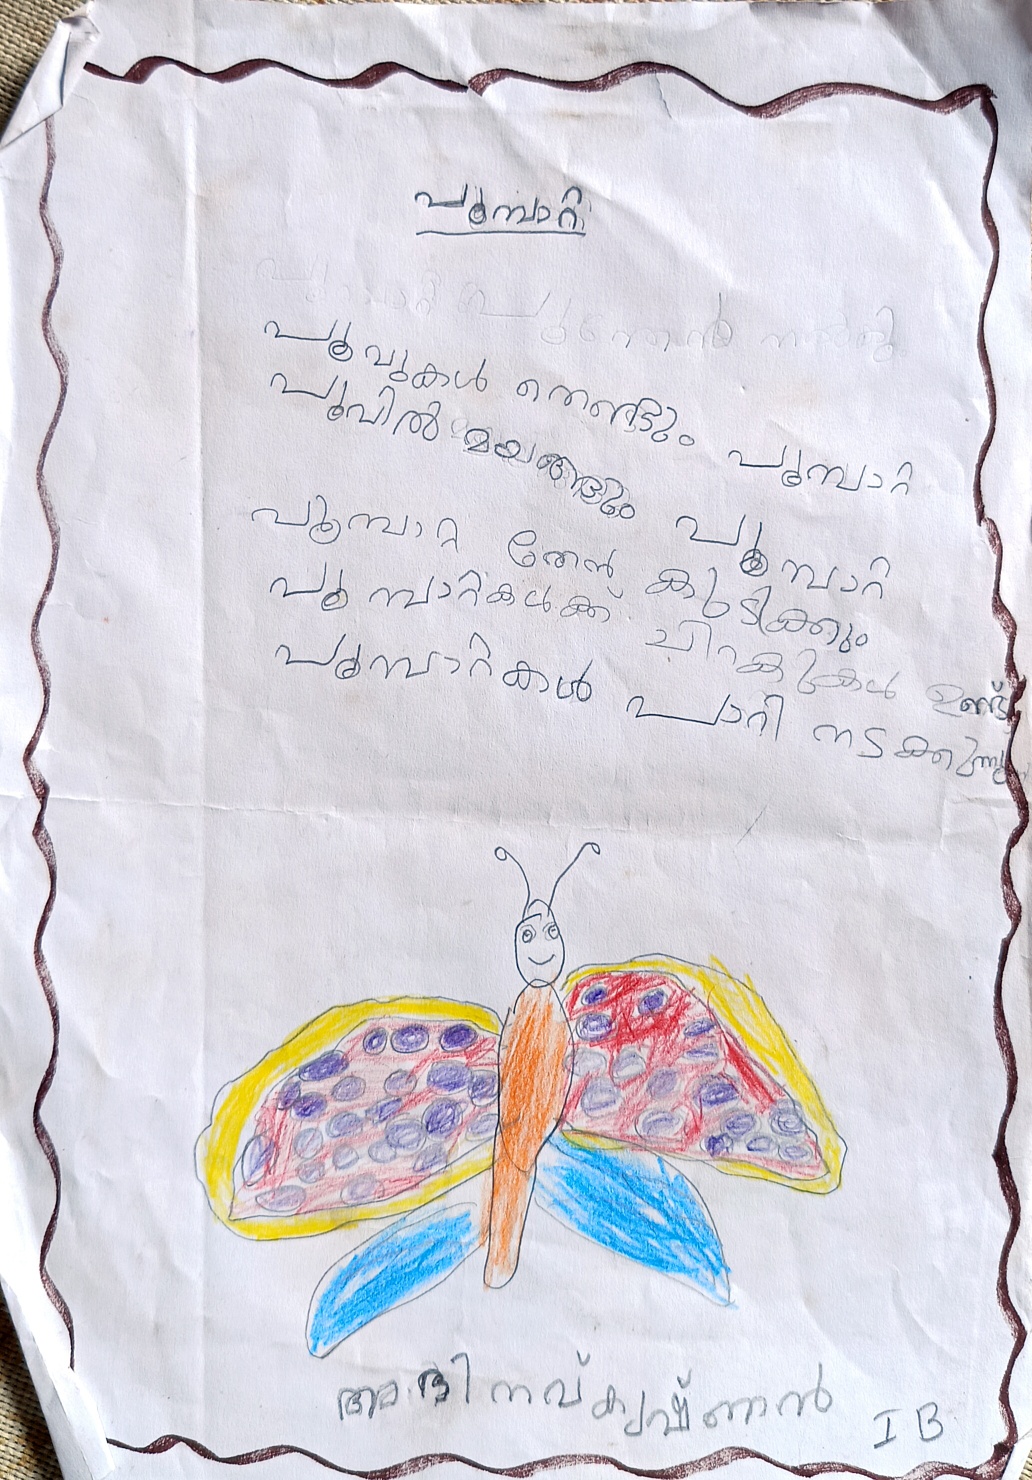 പൂമ്പാറ്റ
പൂവുകൾ തെണ്ടും പൂമ്പാറ്റ
പൂവിൽ മയങ്ങും പൂമ്പാറ്റ
പൂമ്പാറ്റ തേൻ കുടിക്കും
പൂമ്പാറ്റകൾക്ക് ചിറകുകൾ ഉണ്ട്
പൂമ്പാറ്റകൾ പാറി നടക്കുന്നു
അഭിനവ് കൃഷ്ണൻ I B